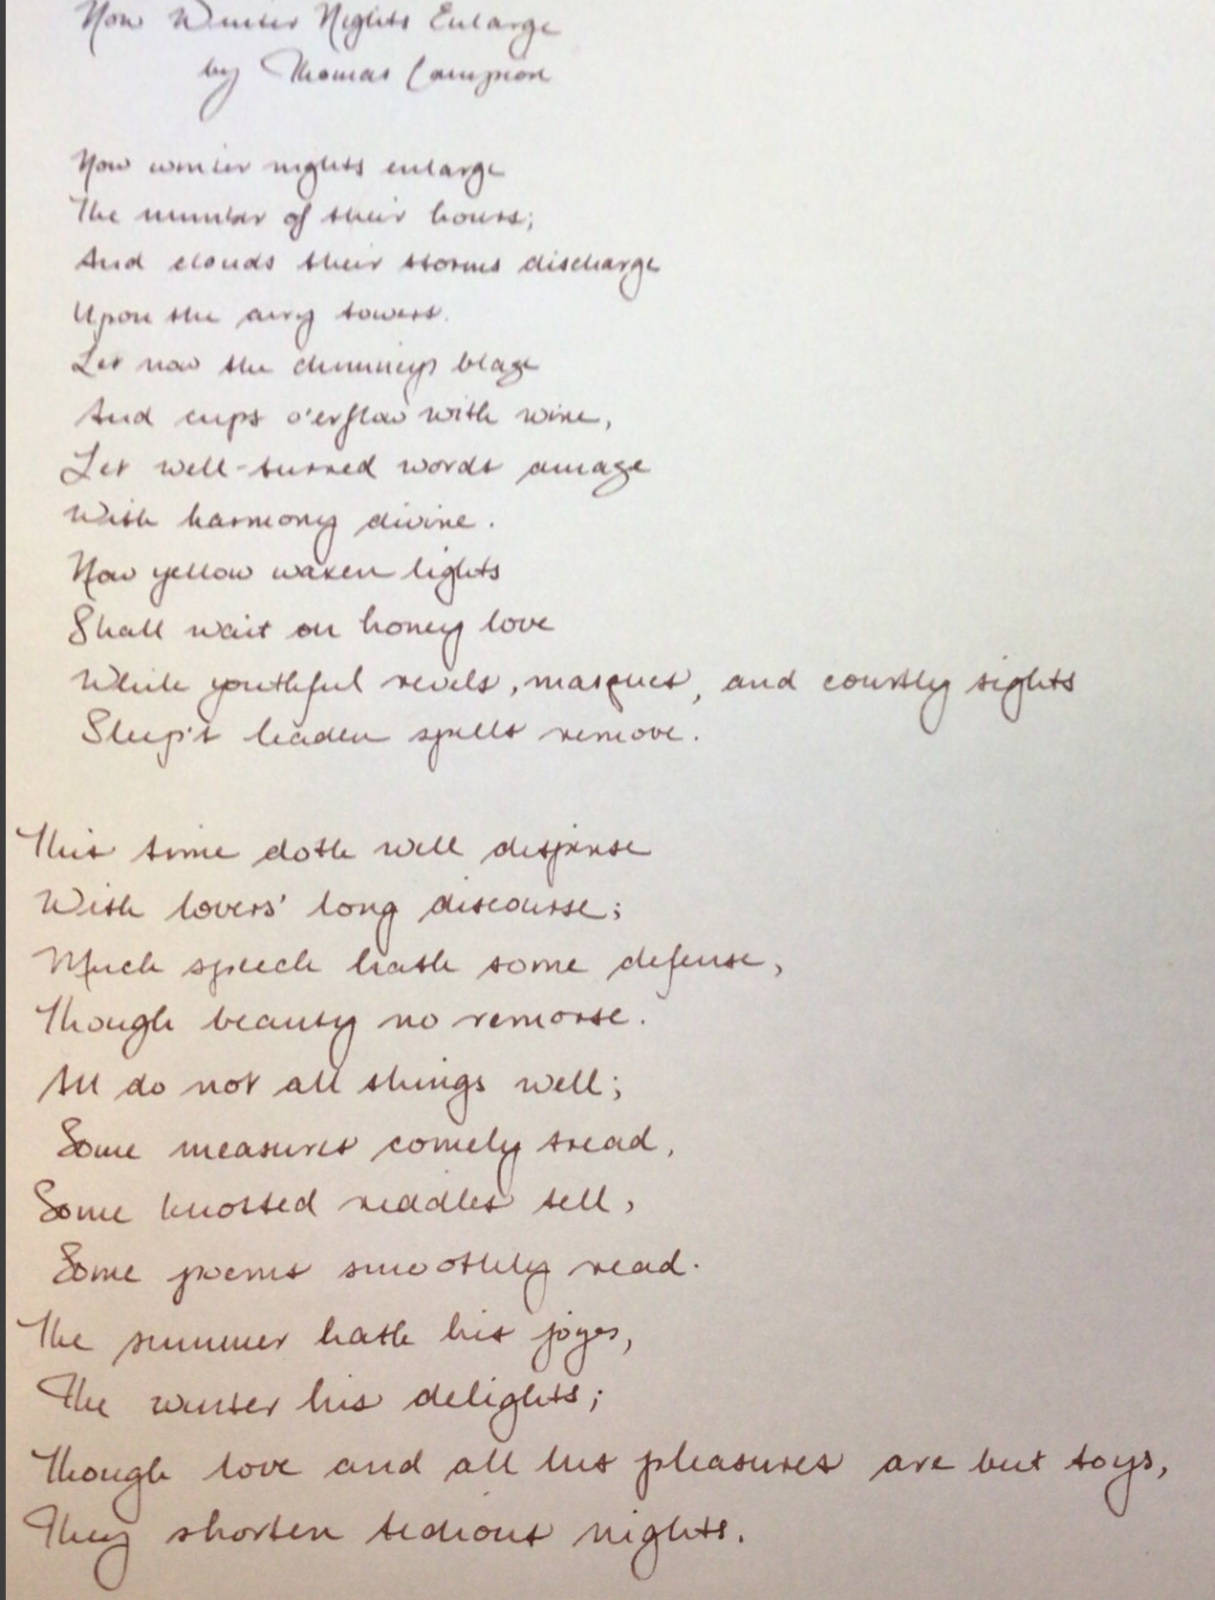 Now Winter Nights Enlarge
by Thomas Campion
Now winter nights enlarge
The number of their hours;
And clouds their storms discharge
Upon the airy towers.
Let now the chimneys blaze
And cups o'erflow with wine,
Let well-turned words amaze
With harmony divine.
Now yellow waxen lights
Shall wait on honey love
While youthful revels, masques, and courtly sights
Sleep's leaden spells remove.
This time doth well dispense
With lovers' long discourse;
Much speech hath some defense,
Though beauty no remorse.
All do not all things well;
Some measures comely tread,
Some knotted riddles tell,
Some poems smoothly read.
The summer hath his joys,
The winter his delights;
Though love and all his pleasures are but toys,
They shorten tedious nights.